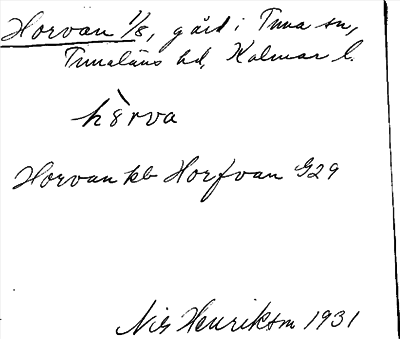 Horvan 1/8, gård i Tuna sn,
Tunaläns hd, Kalmar l.
hèrva
Horvan kb Horfvan G29
Nils Henrikson 1931